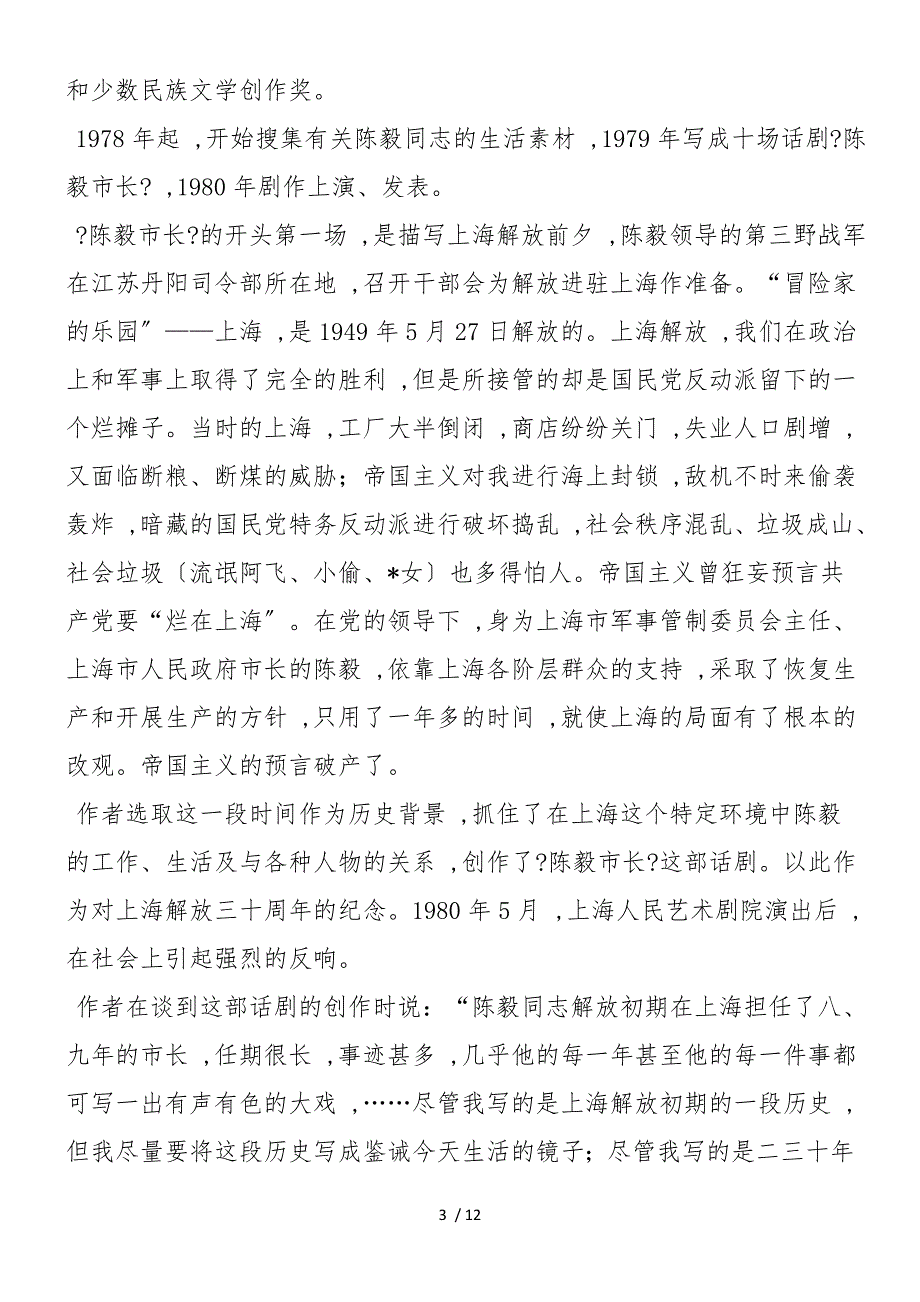 和少数民族文学创作奖。
1978 年起 ,开始搜集有关陈毅同志的生活素材 ,1979 年写成十场话剧?陈
毅市长? ,1980 年剧作上演、发表。
?陈毅市长?的开头第一场 ,是描写上海解放前夕 ,陈毅领导的第三野战军
在江苏丹阳司令部所在地 ,召开干部会为解放进驻上海作准备。“冒险家
的乐园〞——上海 ,是 1949 年 5 月 27 日解放的。上海解放 ,我们在政治
上和军事上取得了完全的胜利 ,但是所接管的却是国民党反动派留下的一
个烂摊子。当时的上海 ,工厂大半倒闭 ,商店纷纷关门 ,失业人口剧增 ,
又面临断粮、断煤的威胁；帝国主义对我进行海上封锁 ,敌机不时来偷袭
轰炸 ,暗藏的国民党特务反动派进行破坏捣乱 ,社会秩序混乱、垃圾成山、
社会垃圾〔流氓阿飞、小偷、*女〕也多得怕人。帝国主义曾狂妄预言共
产党要“烂在上海〞。在党的领导下 ,身为上海市军事管制委员会主任、
上海市人民政府市长的陈毅 ,依靠上海各阶层群众的支持 ,采取了恢复生
产和开展生产的方针 ,只用了一年多的时间 ,就使上海的局面有了根本的
改观。帝国主义的预言破产了。
作者选取这一段时间作为历史背景 ,抓住了在上海这个特定环境中陈毅
的工作、生活及与各种人物的关系 ,创作了?陈毅市长?这部话剧。以此作
为对上海解放三十周年的纪念。1980 年 5 月 ,上海人民艺术剧院演出后 ,
在社会上引起强烈的反响。
作者在谈到这部话剧的创作时说：“陈毅同志解放初期在上海担任了八、
九年的市长 ,任期很长 ,事迹甚多 ,几乎他的每一年甚至他的每一件事都
可写一出有声有色的大戏 ,……尽管我写的是上海解放初期的一段历史 ,
但我尽量要将这段历史写成鉴诫今天生活的镜子；尽管我写的是二三十年
3 / 12